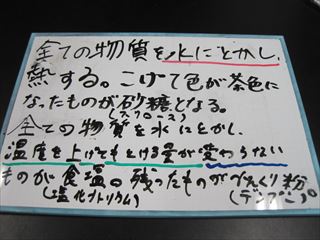 全ての物質を水にとかし、
熱する。こげて色が茶色に
なったものが砂糖となる。
(スクロース)
全ての物質を水にとかし、
温度を上げてもとける量が変わらない
ものが食塩。残ったものがかたくり粉
(塩化ナトリウム) (デンプン)。